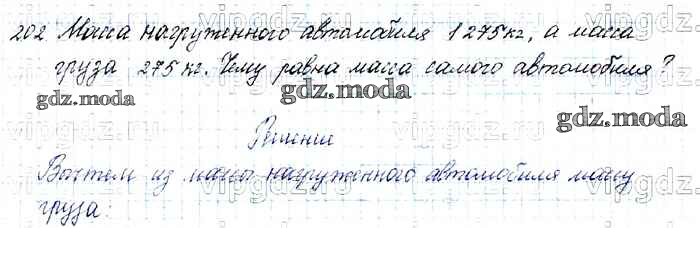 202 Масса нагруженного автомобиля 1275 кг, а масса
груза 275 кг. Чему равна масса самого автомобиля?
gdz.moda gdz.moda gdz.moda
Решение
Вычтем из массы нагруженного автомобиля массу
груза: